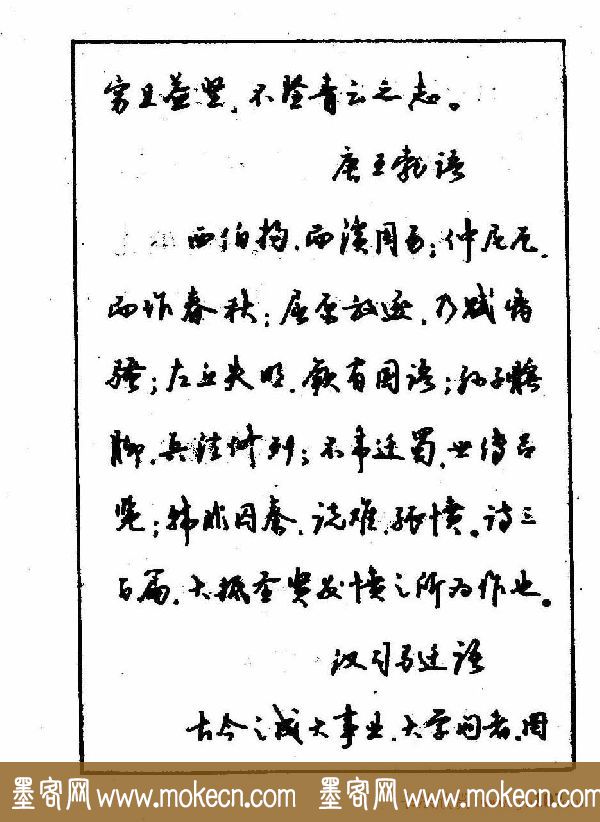 穷且益坚，不坠青云之志。
唐王勃语
西伯拘，而演周易；仲尼厄，
而作春秋；屈原放逐，乃赋离
骚；左丘失明，厥有国语；孙子膑
脚，兵法修列；不韦迁蜀，世传吕
览；韩非囚秦，说难、孤愤。诗三
百篇，大抵圣贤发愤之所为作也。
汉司马迁语
古今之成大事业、大学问者，罔
墨客网 www.mokecn.com 墨客网 www.mokecn.com